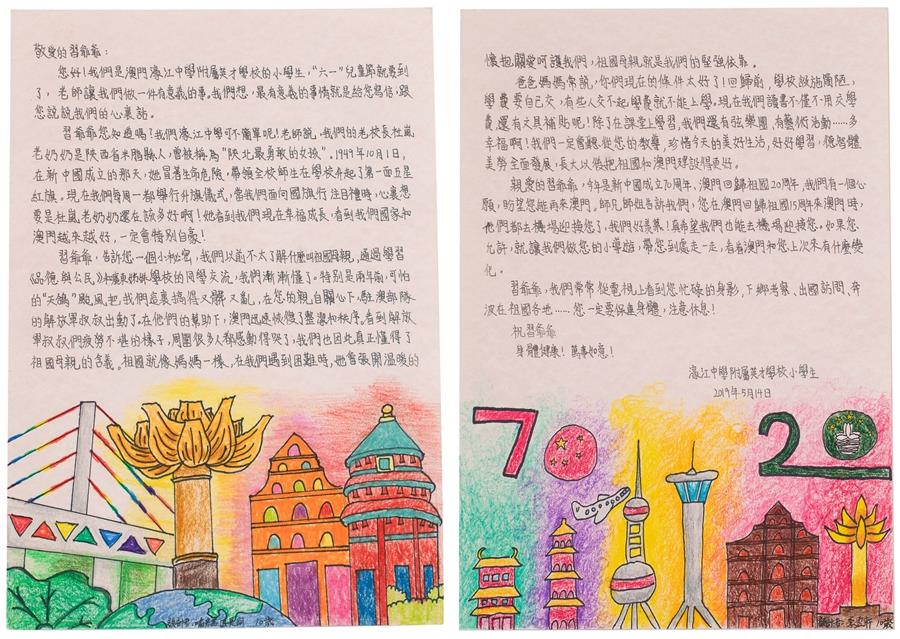 敬愛的習爺爺：
您好！我們是澳門濠江中學附屬英才學校的小學生，“六一”兒童節就要到
了，老師讓我們做一件有意義的事。我們想，最有意義的事情就是給您寫信，跟
您說說我們的心裏話。
習爺爺您知道嗎！我們濠江中學可不簡單呢！老師說，我們的老校長杜嵐
老奶奶是陝西省米脂縣人，曾被稱為“陝北最勇敢的女孩”。1949年10月1日，
在新中國成立的那天，她冒著生命危險，帶領全校師生在學校升起了第一面五星
紅旗。現在我們每周一都舉行升旗儀式，當我們面向國旗行注目禮時，心裏想
要是杜嵐老奶奶還在該多好啊！她看到我們現在幸福成長，看到我們國家和
澳門越來越好，一定會特別自豪！
習爺爺，告訴您一個小秘密，我們以前不太了解什麼叫祖國母親，通過學習
《品德與公民》學校的同學交流，我們漸漸懂了。特別是兩年前，可怕
的“天鴿”颱風把我們這裏搞得又髒又亂，在您的親自關心下，駐澳部隊
的解放軍叔叔出動了。在他們的幫助下，澳門迅速恢復了整潔和秩序。看到解放
軍叔叔們疲勞不堪的樣子，周圍很多人都感動得哭了，我們也因此真正懂得了
祖國母親的含義。祖國就像媽媽一樣，在我們遇到困難時，她會張開溫暖的
懷抱關愛呵護我們，祖國母親就是我們的堅強依靠。
爸爸媽媽常說，你們現在的條件太好了！回歸前，學校設施簡陋，
學費要自己交，有些人交不起學費就不能上學。現在我們讀書不僅不用交學
費，還有文具補貼呢！除了在課堂上學習，我們還有弦樂團，有藝術活動……多
幸福啊！我們一定會聽從您的教導，珍惜今天的美好生活，好好學習，德智體
美勞全面發展，長大以後把祖國和澳門建設得更好。
親愛的習爺爺，今年是新中國成立70周年、澳門回歸祖國20周年，我們有一個心
願，盼望您能再來澳門。師兄師姐告訴我們，您在澳門回歸祖國15周年來澳門時，
他們都去機場迎接您了，我們好羨慕！真希望我們也能去機場迎接您。如果您
允許，就讓我們做您的小導遊，帶您到處走一走，看看澳門和您上次來有什麼變
化。
習爺爺，我們常常從電視上看到您忙碌的身影，下鄉考察、出國訪問、奔
波在祖國各地……您一定要保重身體，注意休息！
祝習爺爺
身體健康！萬事如意！
濠江中學附屬英才學校小學生
2019年5月14日
70
20
10歲
10歲